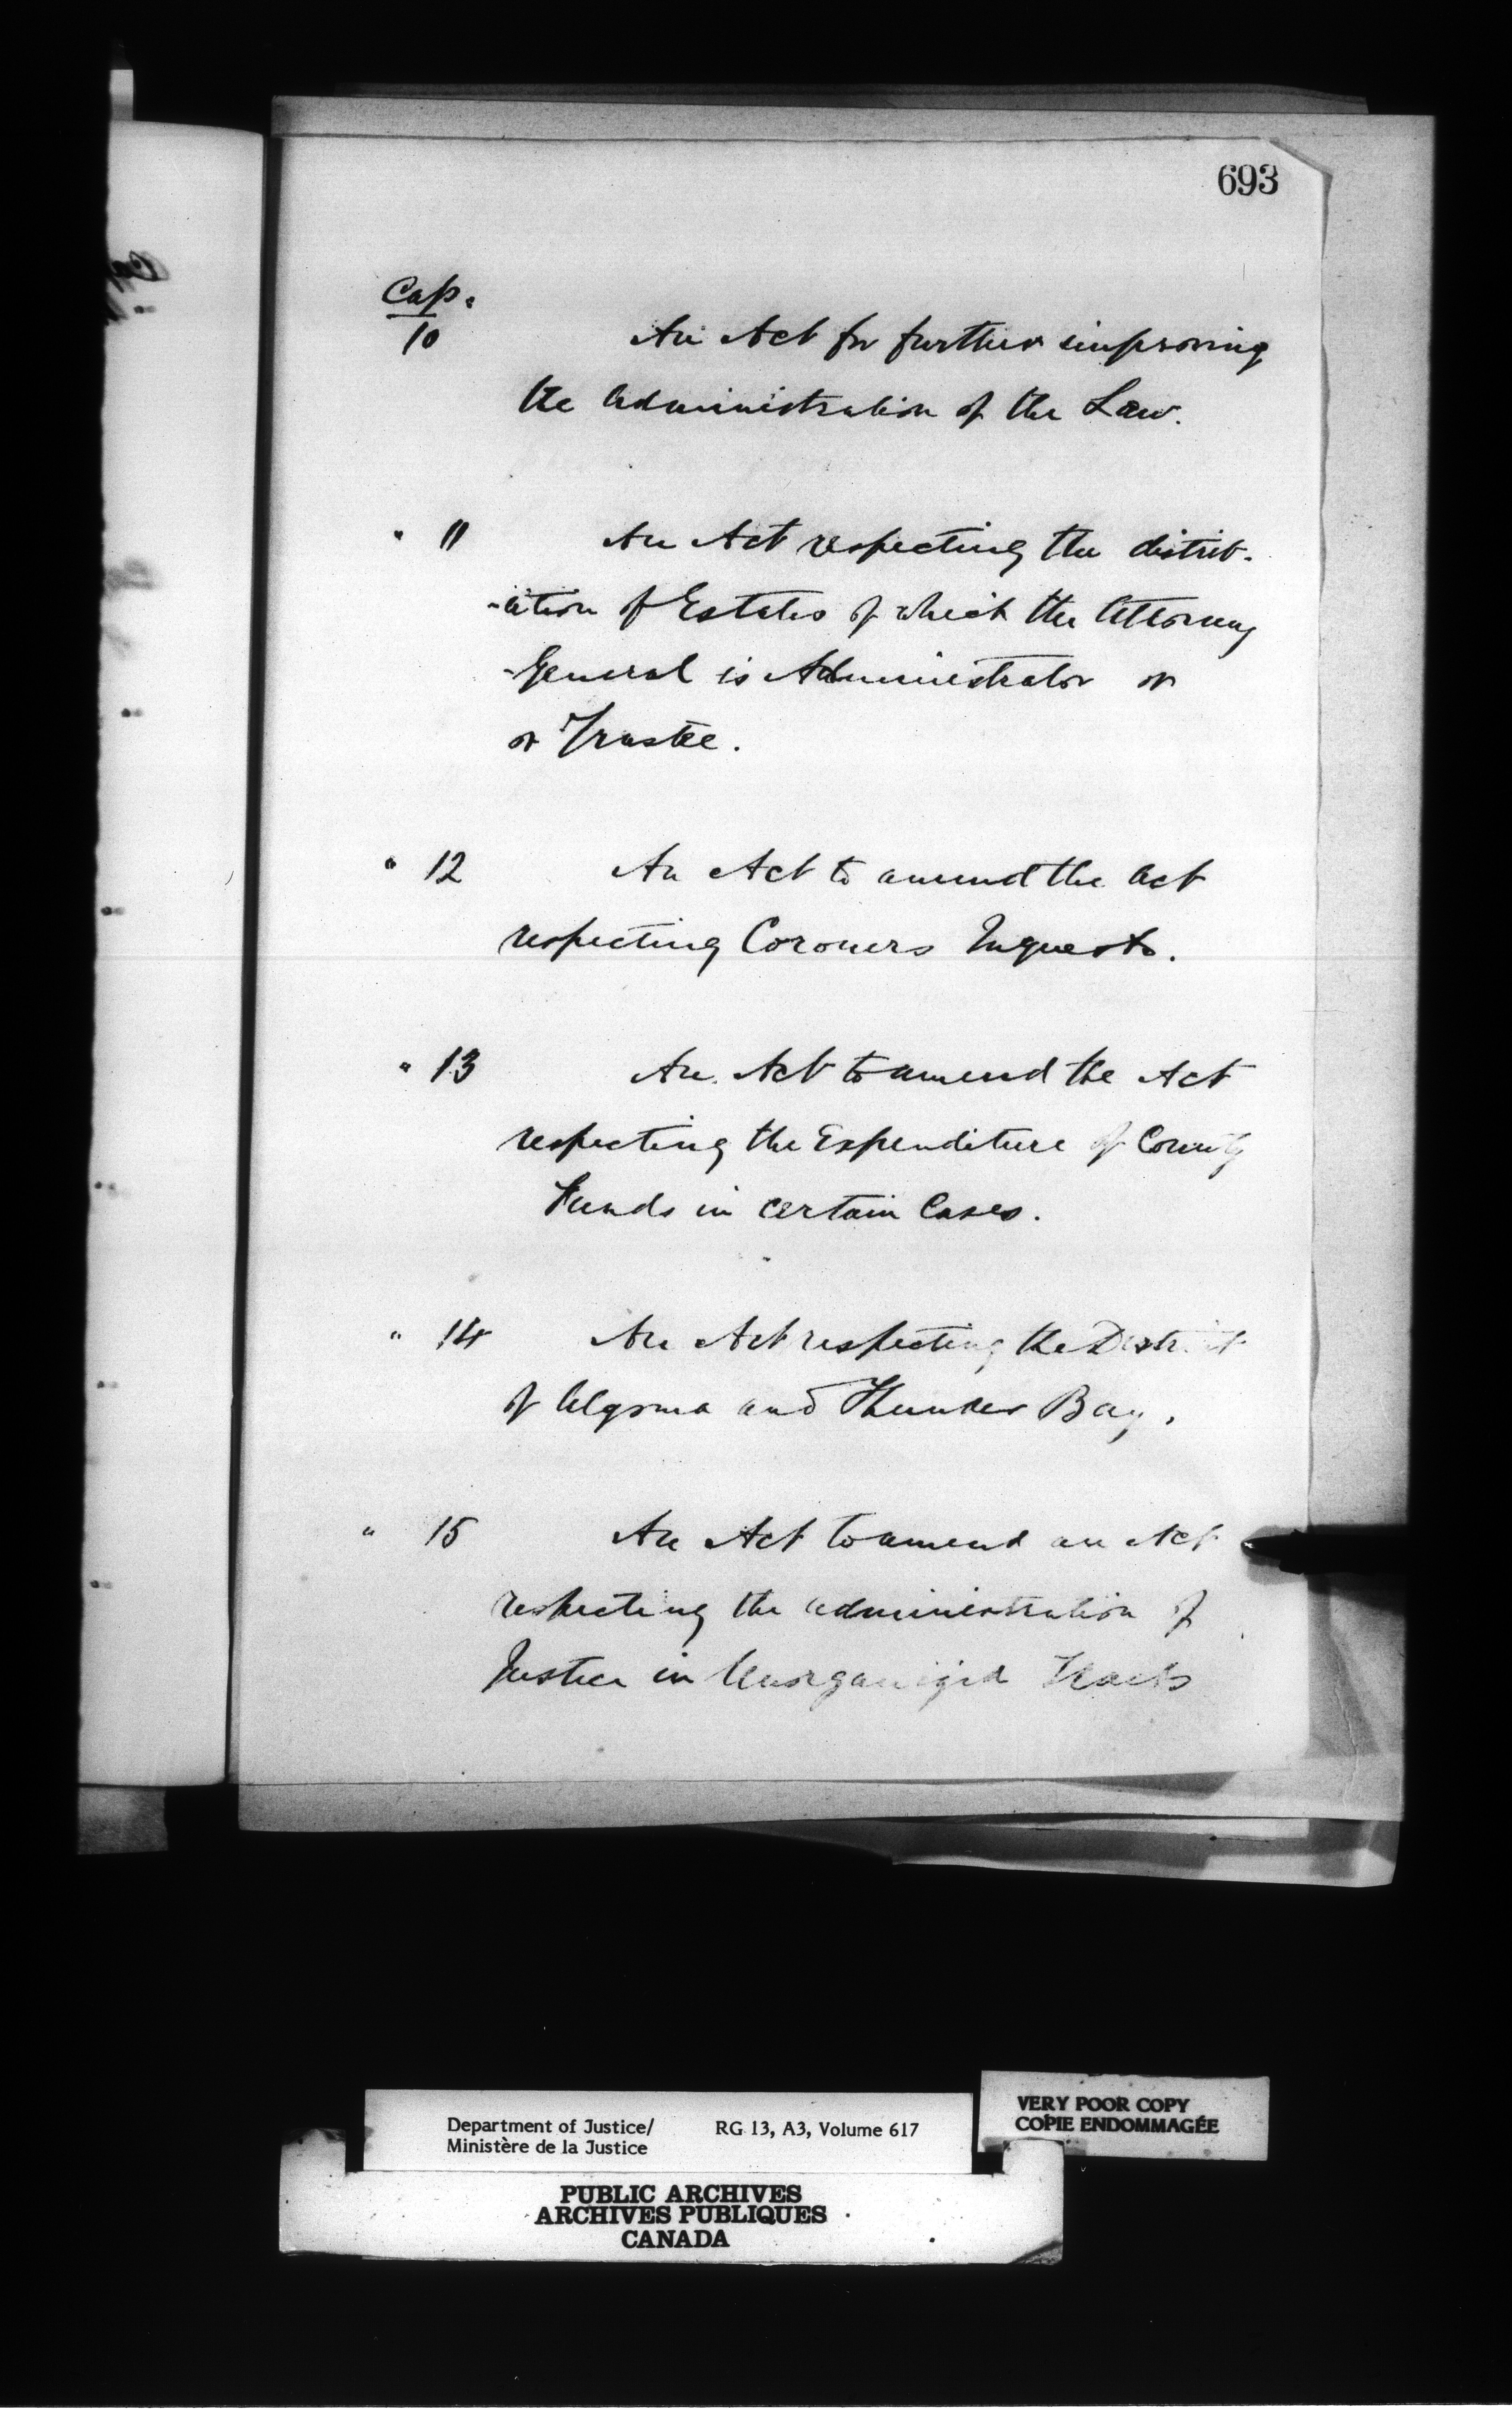 693
Cap.
10 An Act for further improving
the administration of the Law.
" 11 An Act respecting the distrib-
-ution of Estates of which the Attorney
-General is Administrator or
or Trustee.
" 12 An Act to amend the Act
respecting Coroners Inquests.
" 13 An Act to amend the Act
respecting the Expenditure of County
Funds in certain Cases.
" 14 An Act respecting the District
of Algoma and Thunder Bay.
" 15 An Act to amend an Act
respecting the administration of
Justice in Unorganized Tracts
Department of Justice/ RG 13, A3, Volume 617
Ministère de la Justice
VERY POOR COPY
COPIE ENDOMMAGÉE
PUBLIC ARCHIVES
ARCHIVES PUBLIQUES
CANADA